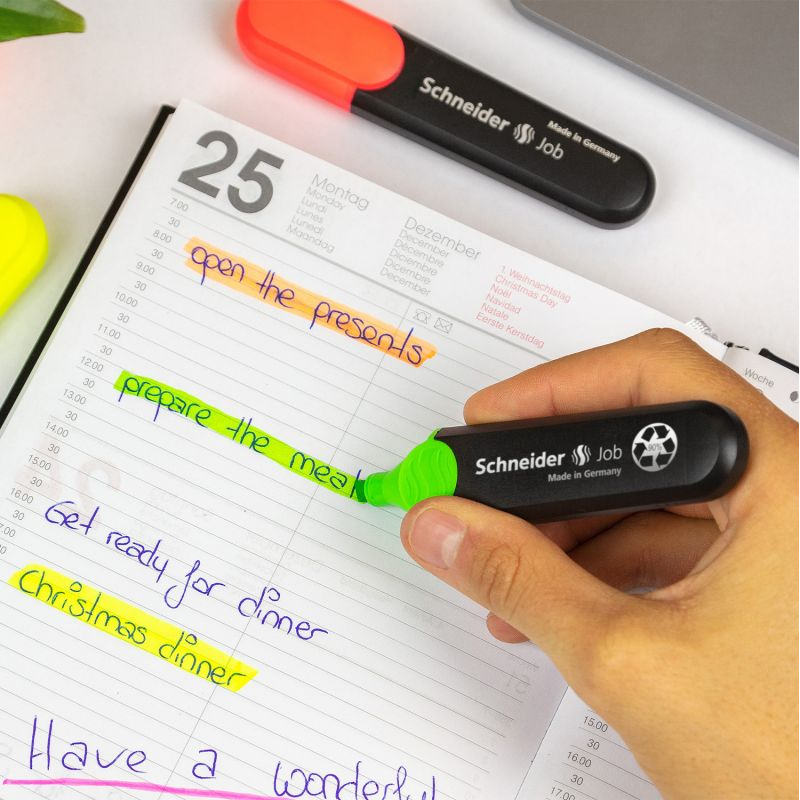 Schneider Job
Made in Germany
25
Montag
Monday
Lundi
Lunes
Lunedì
Maandag
Dezember
December
Décembre
Diciembre
Dicembre
December
1. Weihnachtstag
Christmas Day
Noël
Navidad
Natale
Eerste Kerstdag
7.00
30
8.00
30
open the presents
9.00
30
10.00
30
11.00
30
12.00
30
prepare the meal
13.00
30
14.00
30
15.00
30
16.00
30
Get ready for dinner
Christmas dinner
Have a wonderful
Woche
Schneider Job
Made in Germany
90%
15.00
30
16.00
30
17.00